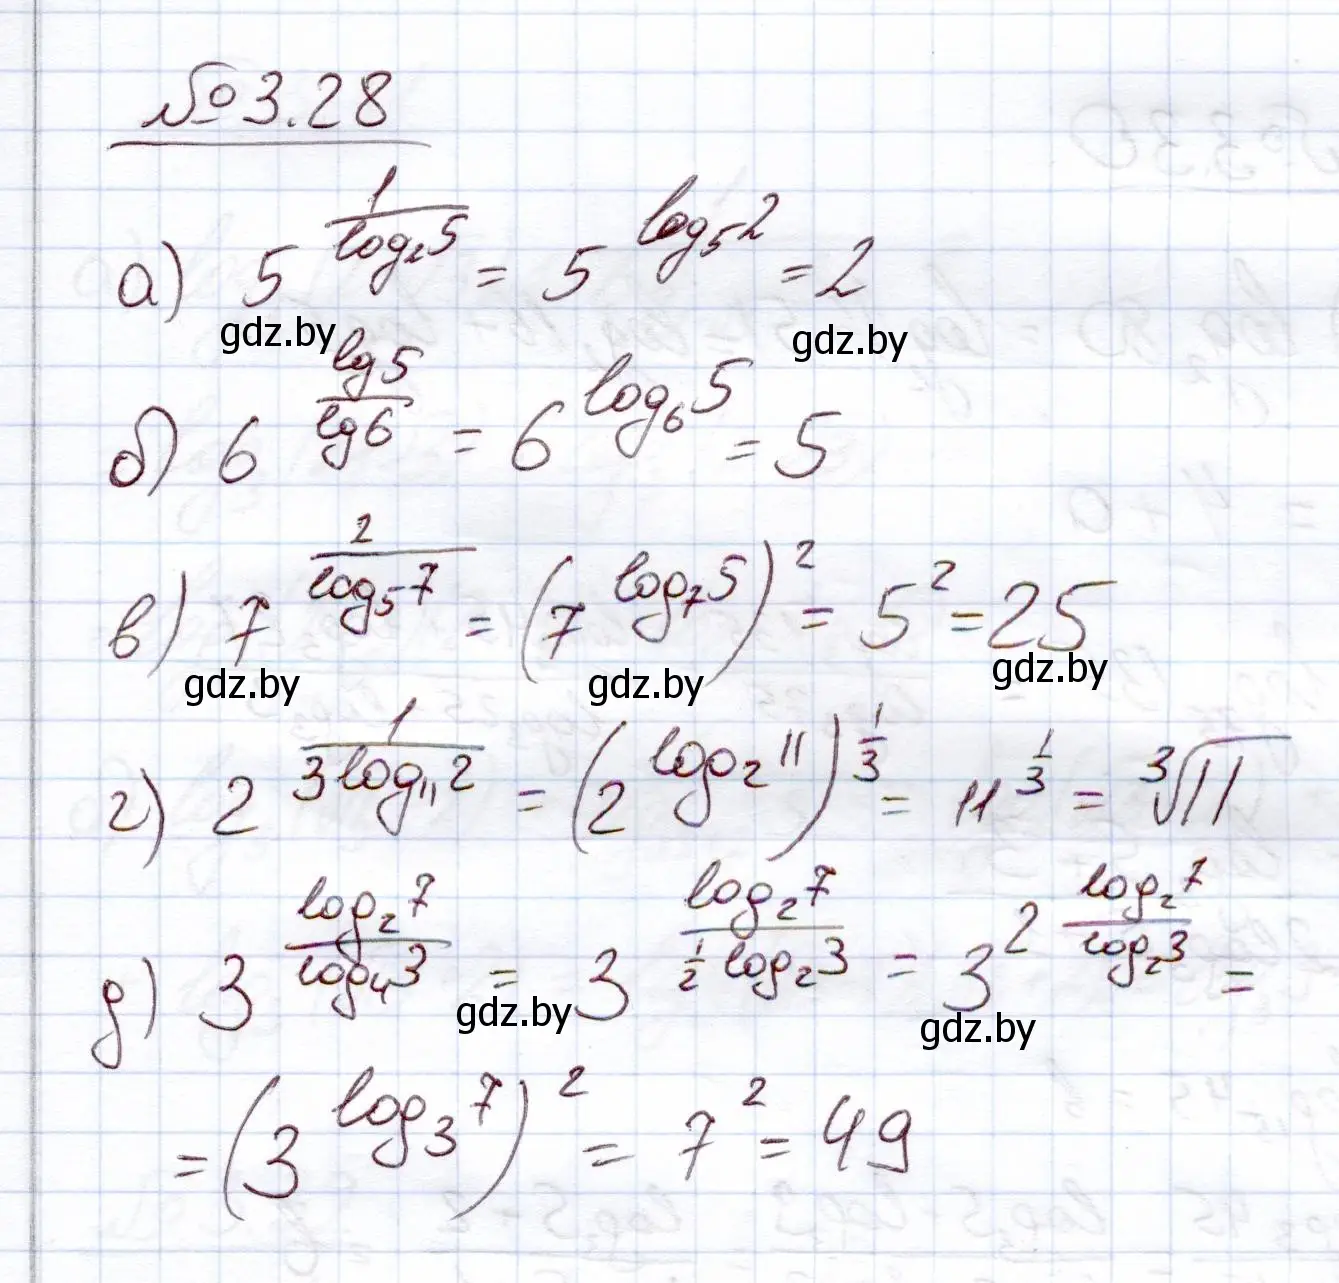 №3.28
а) 5^(1/log₂5) = 5^(log₅2) = 2
gdz.by gdz.by
б) 6^(lg5/lg6) = 6^(log₆5) = 5
в) 7^(2/log₅7) = (7^(log₇5))² = 5² = 25
gdz.by gdz.by gdz.by
г) 2^(1/(3log₁₁2)) = (2^(log₂11))^(1/3) = 11^(1/3) = ³√11
д) 3^(log₂7/log₄3) = 3^(log₂7/(1/2 log₂3)) = 3^(2 log₂7/log₂3) =
gdz.by gdz.by
= (3^(log₃7))² = 7² = 49